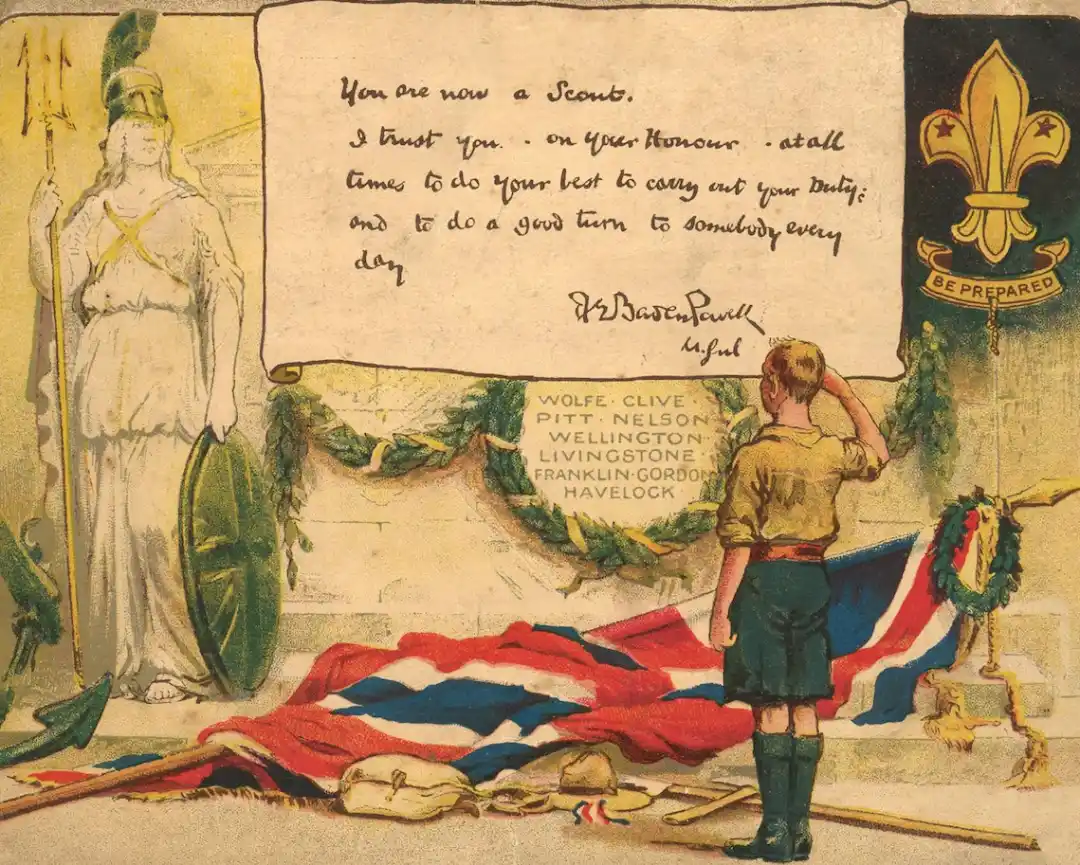 You are now a Scout.
I trust you. - on your Honour - at all
times to do your best to carry out your Duty:
and to do a good turn to somebody every
day
Baden Powell
BE PREPARED
WOLFE · CLIVE ·
PITT · NELSON
WELLINGTON
LIVINGSTONE ·
FRANKLIN · GORDON
HAVELOCK